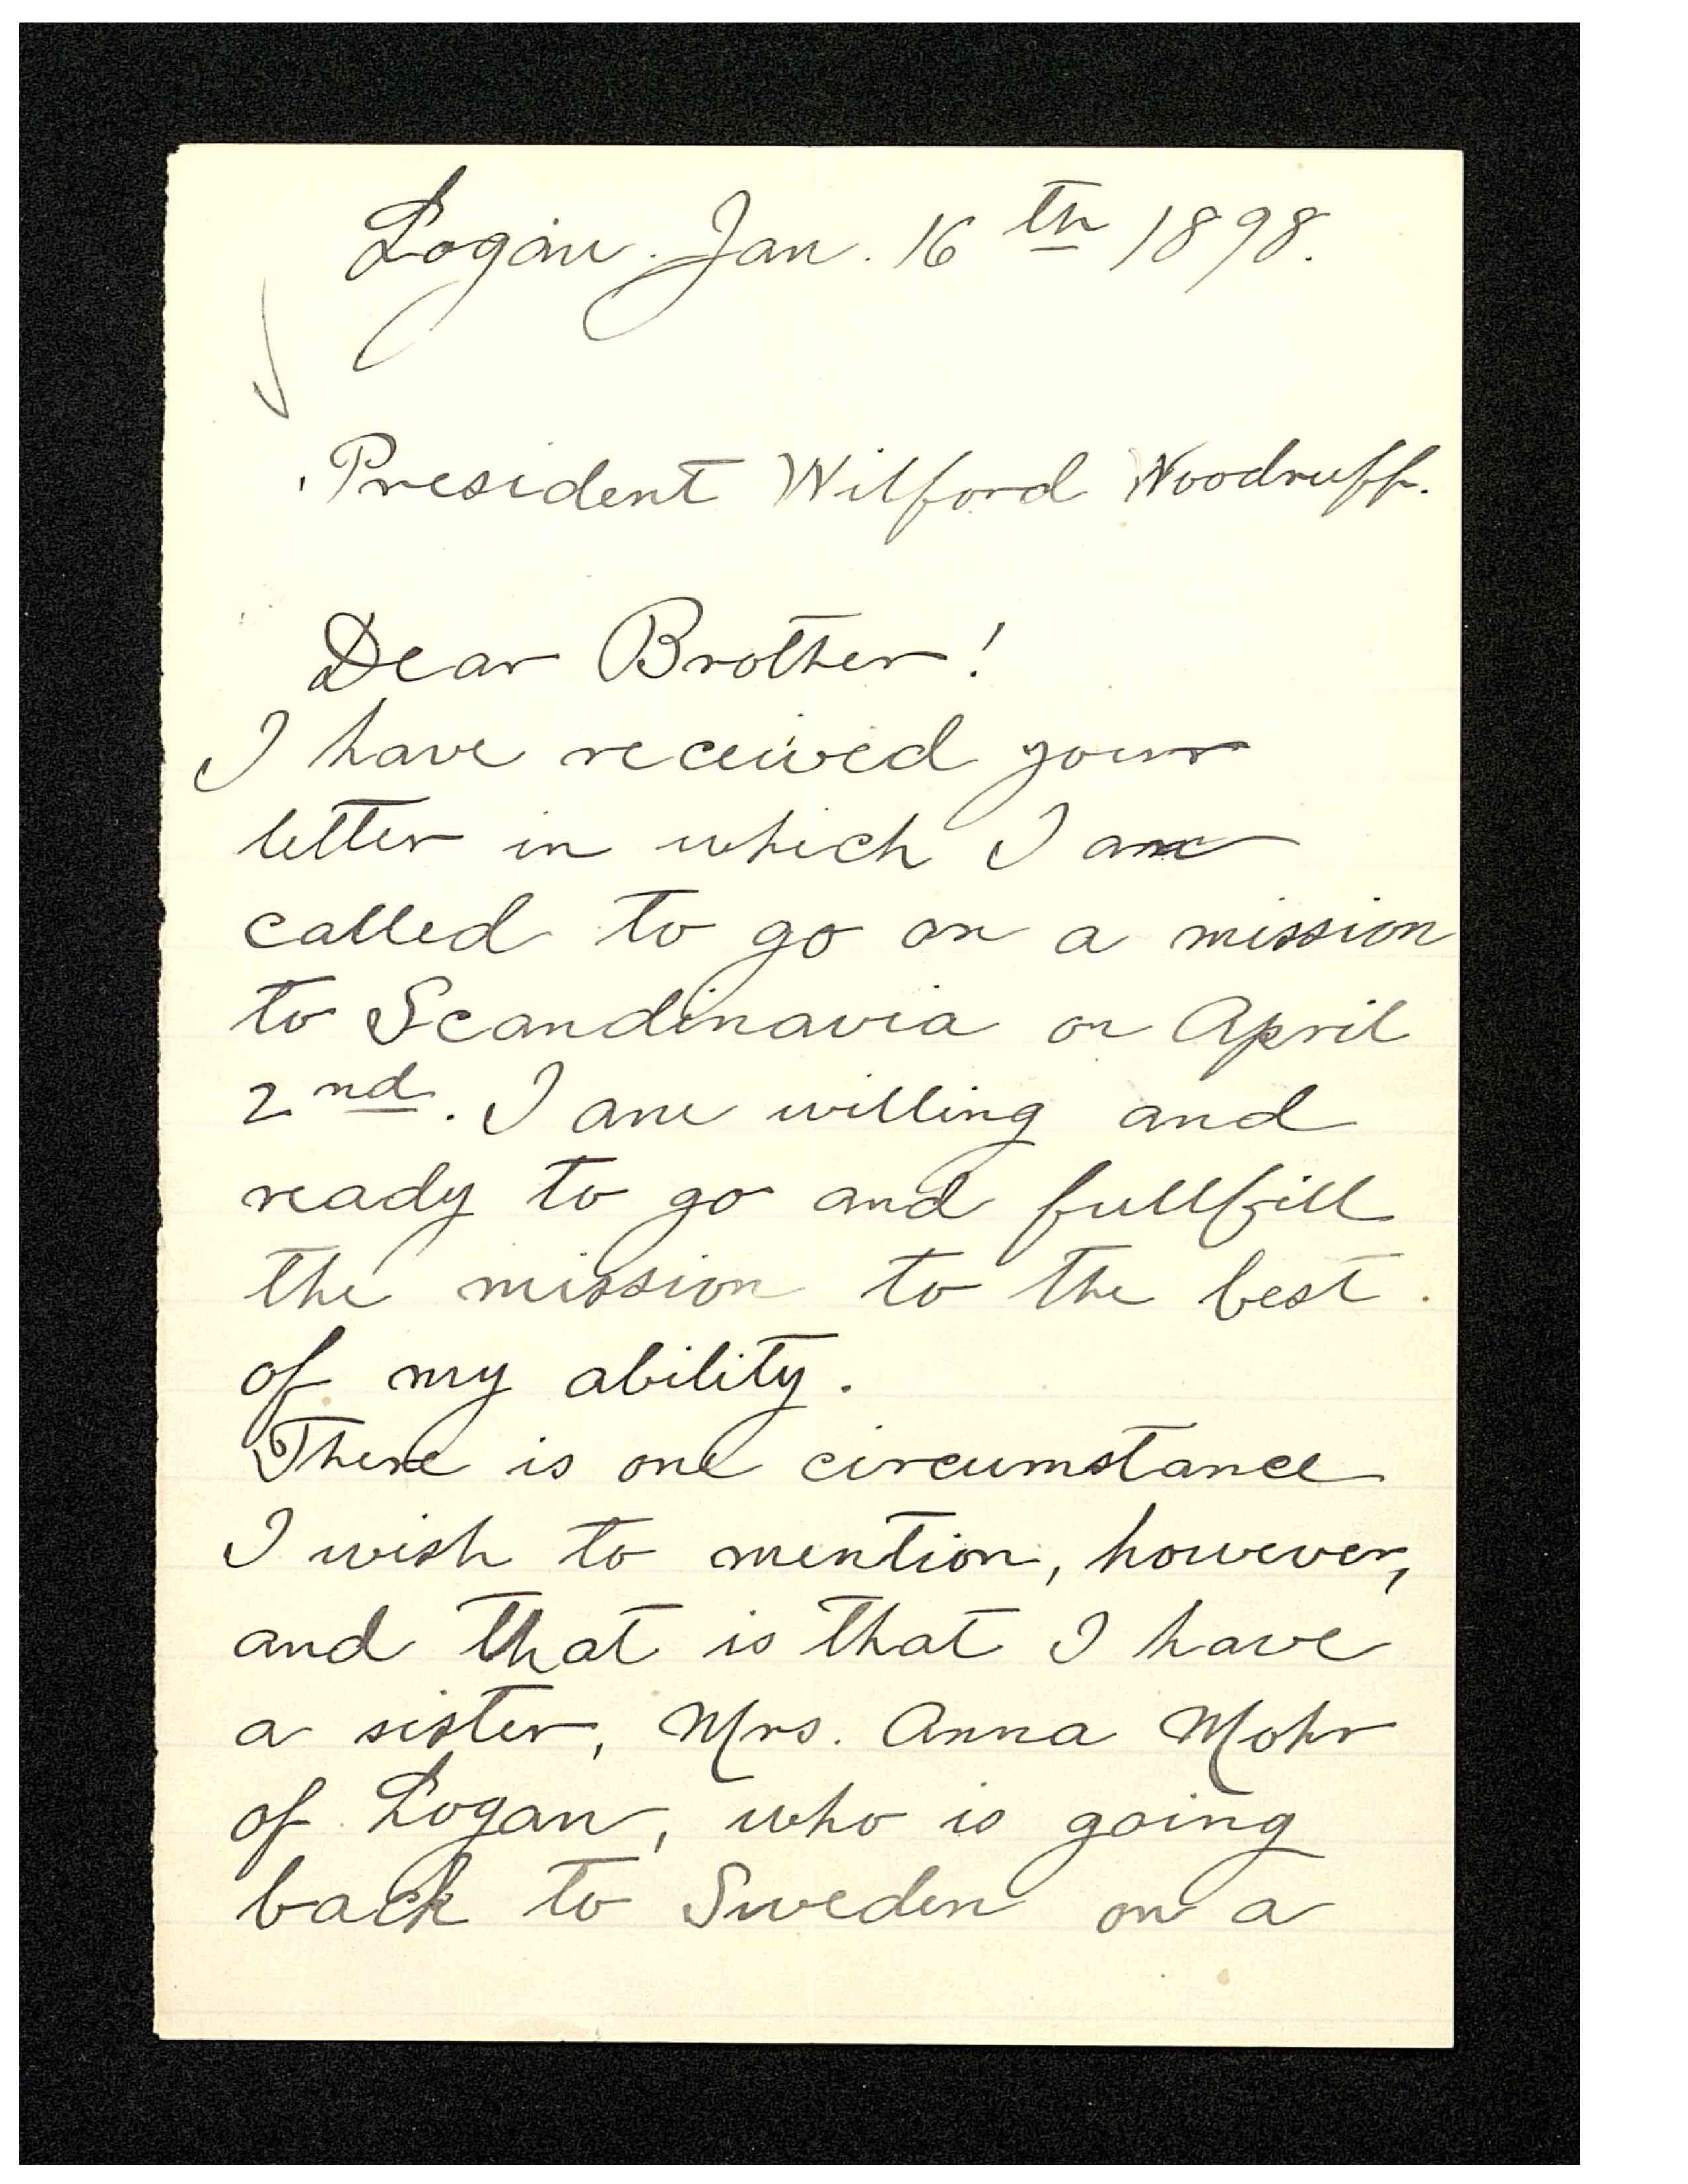 Logan. Jan. 16th 1898.
President Wilford Woodruff.
Dear Brother!
I have received your
letter in which I am
called to go on a mission
to Scandinavia on April
2nd. I am willing and
ready to go and fullfill
the mission to the best
of my ability.
There is one circumstance
I wish to mention, however,
and that is that I have
a sister, Mrs. Anna Mohr
of Logan, who is going
back to Sweden on a